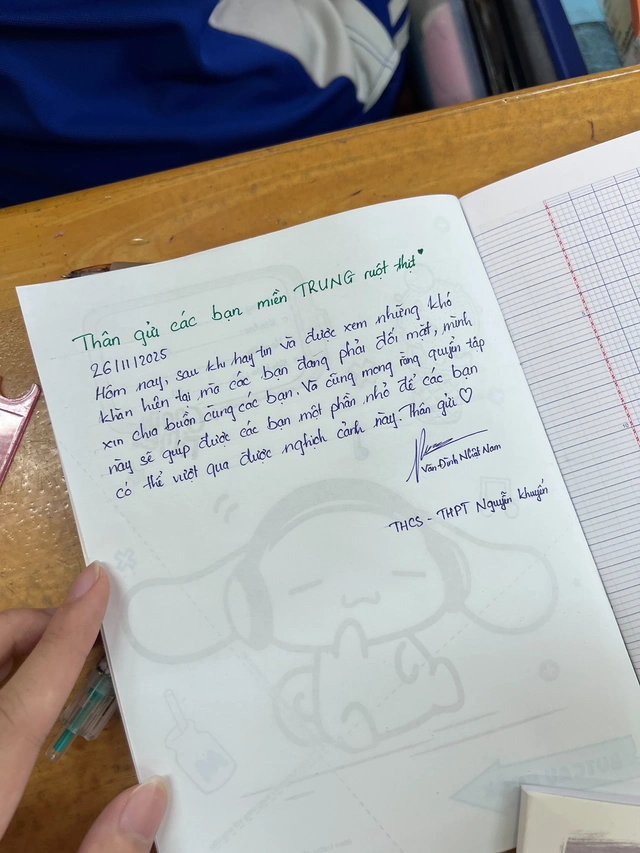 Thân gửi các bạn miền TRUNG ruột thịt
26/11/2025
Hôm nay, sau khi hay tin và được xem những khó
khăn hiện tại mà các bạn đang phải đối mặt, mình
xin chia buồn cùng các bạn. Và cũng mong rằng quyển tập
này sẽ giúp được các bạn một phần nhỏ để các bạn
có thể vượt qua được nghịch cảnh này. Thân gửi ♡
Văn Đình Nhật Nam
THCS - THPT Nguyễn Khuyến